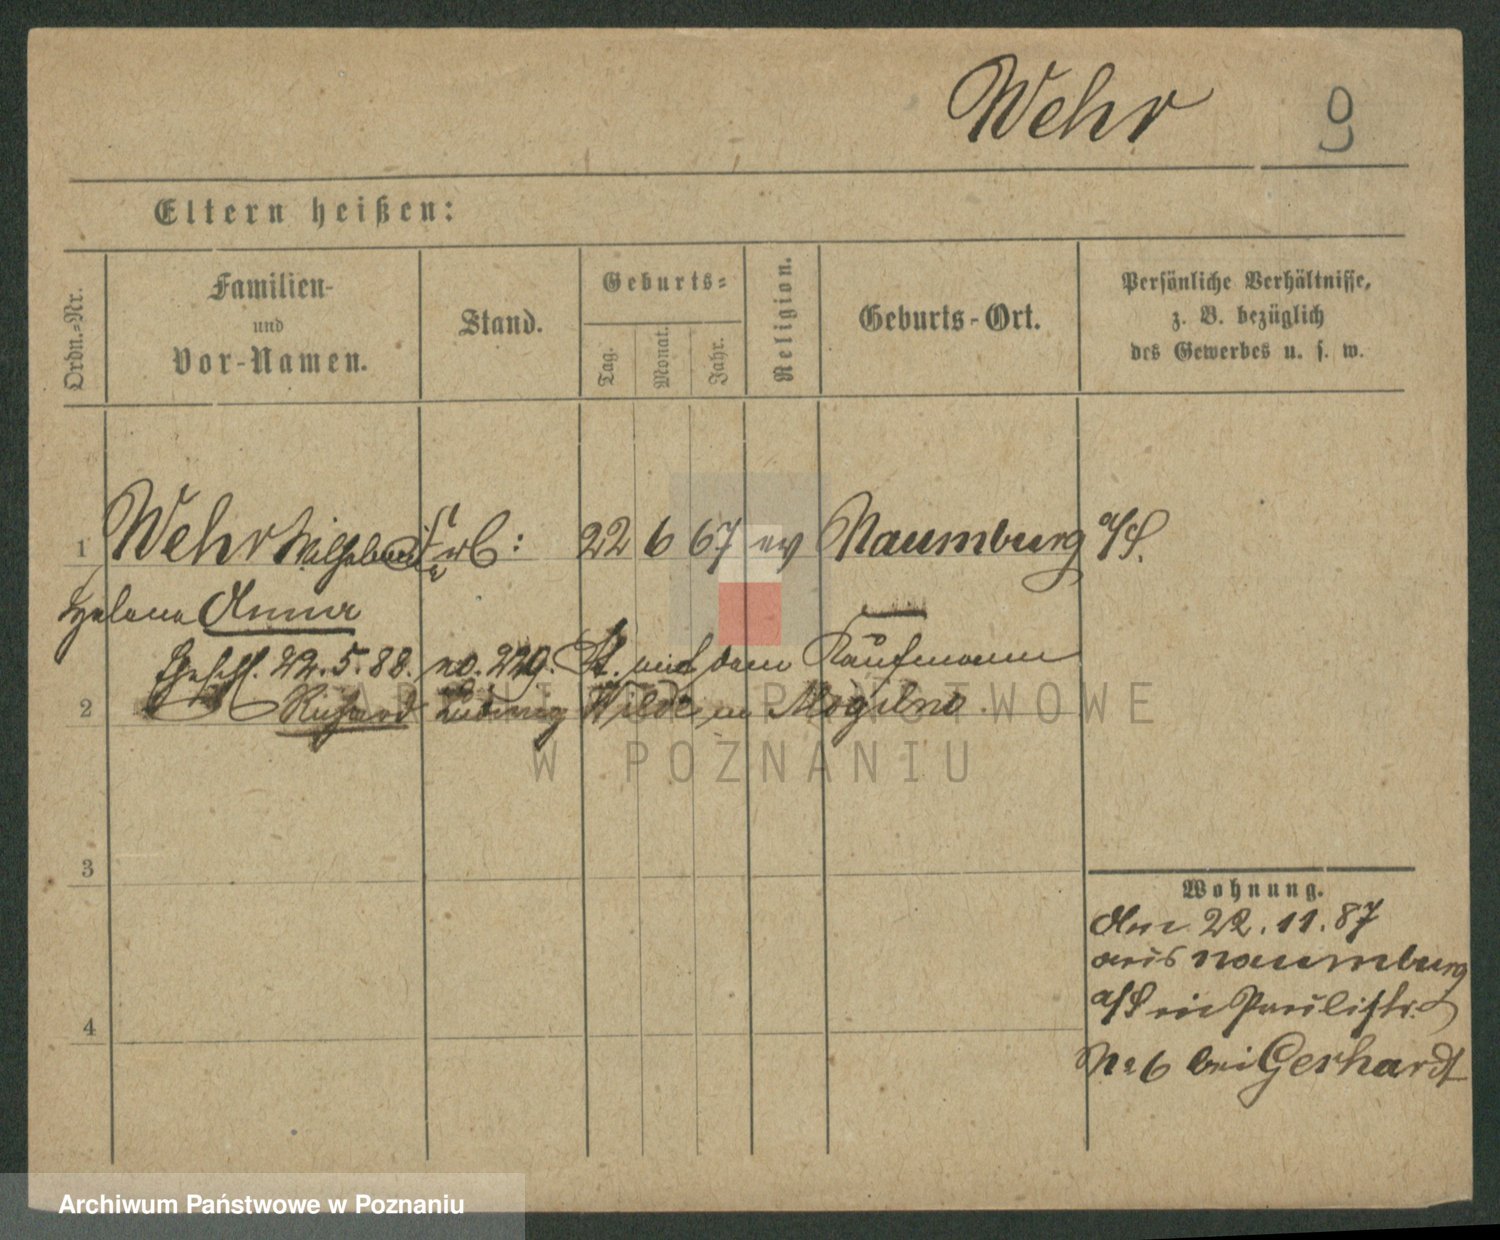 Wehr 9
Eltern heißen:
Ordn.-Nr.
Familien-
und
Vor-Namen.
Stand.
Geburts-
Tag.
Monat.
Jahr.
Religion.
Geburts-Ort.
Persönliche Verhältnisse,
z. B. bezüglich
des Gewerbes u. s. w.
1 Wehr Wilhelmine 22 6 67 ev Naumburg a/S.
Helena Anna
Eheschl. 22.5.88. no. 229. St. mit dem Kaufmann
2 Richard Ludwig Wilde in Mogilno
3
Wohnung.
Am 22.11.87
aus Naumburg
a/S in Paulistr.
4
No 6 bei Gerhardt
ARCHIWUM PAŃSTWOWE
W POZNANIU
Archiwum Państwowe w Poznaniu